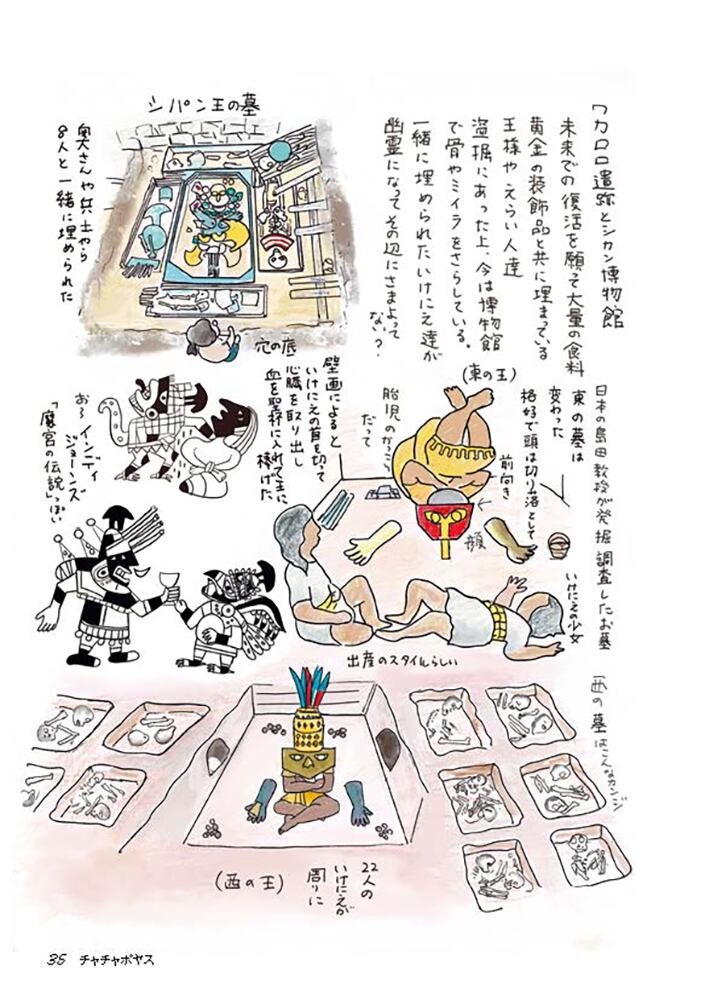 ワカロロ遺跡とシカン博物館
未来での復活を願って大量の食料
黄金の装飾品と共に埋まっている
王様やえらい人達
盗掘にあった上、今は博物館
で骨やミイラをさらしている。
一緒に埋められたいけにえ達が
幽霊になってその辺にさまよって
ない?
シパン王の墓
奥さんや兵士やら
8人と一緒に埋められた
穴の底
日本の島田教授が発掘調査したお墓
東の墓は
変わった
格好で頭は切り落として
前向き
(東の王)
胎児のかっこう
だって
顔
いけにえの少女
出産のスタイルらしい
壁画によると
いけにえの首を切って
心臓を取り出し
血を聖杯に入れて王に
捧げた
お〜インディ
ジョーンズ
「魔宮の伝説」っぽい
西の墓はこんなカンジ
22人の
いけにえが
周りに
(西の王)
35 チャチャポヤス